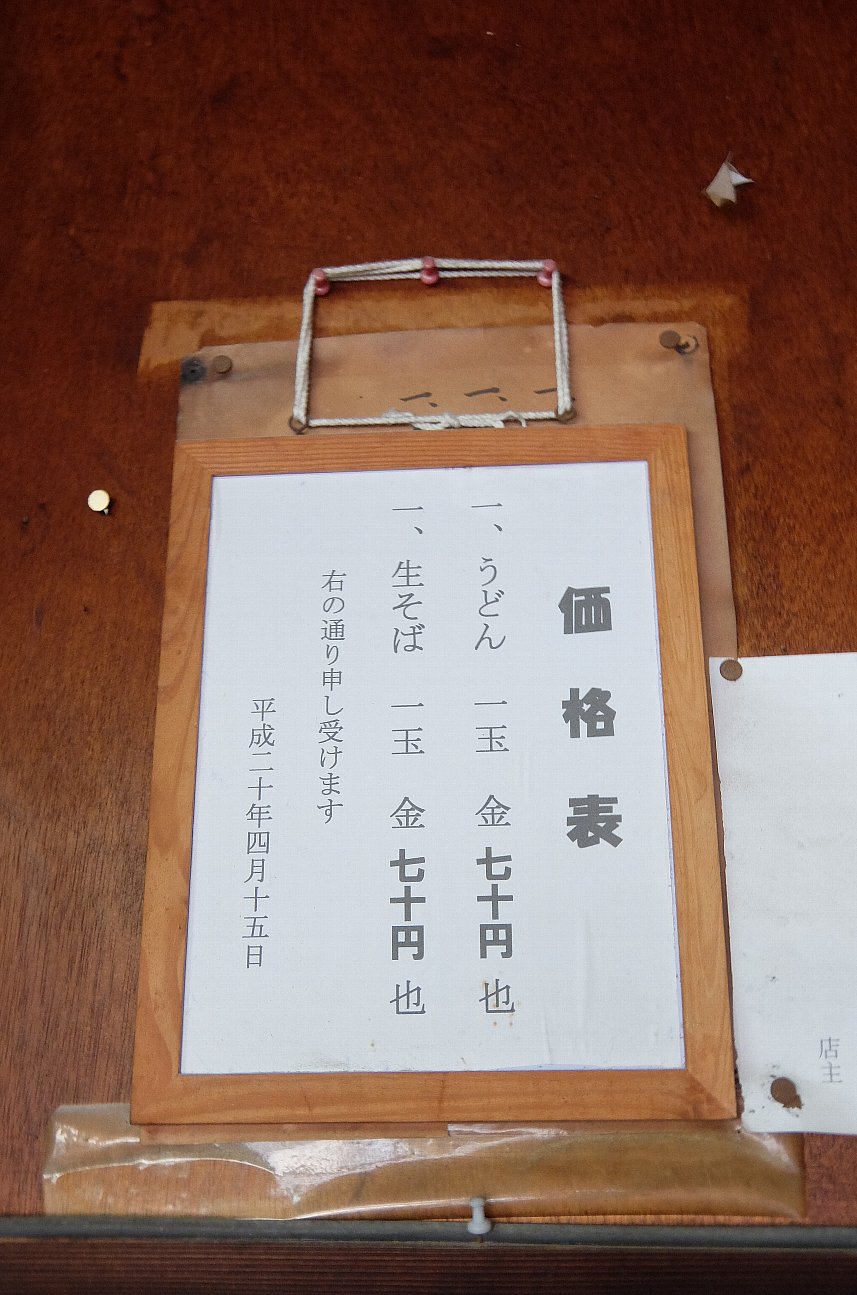 価格表
一、うどん 一玉 金 七十円 也
一、生そば 一玉 金 七十円 也
右の通り申し受けます
平成二十年四月十五日
店主
一、
一、
一、